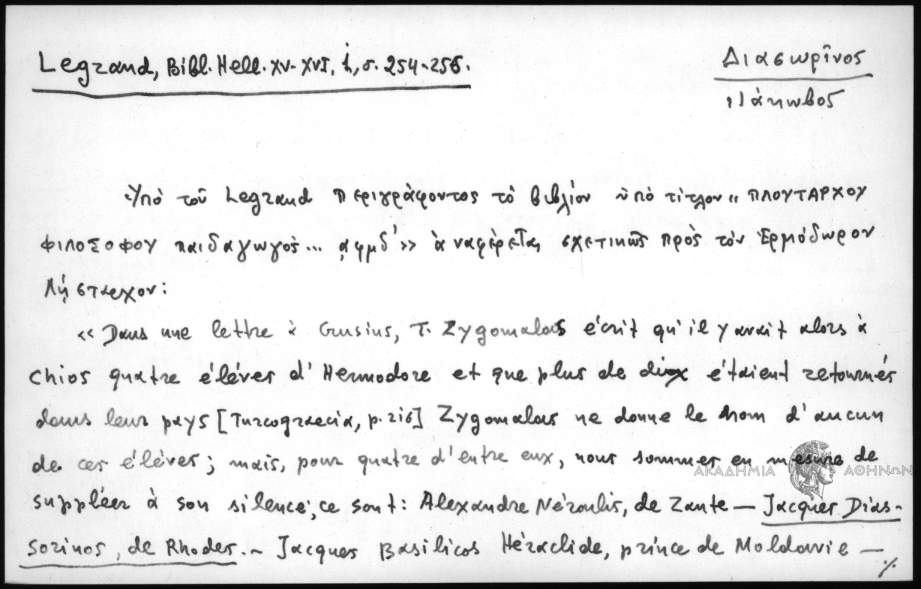 Legrand, Bibl. Hell. XV-XVI, 1, σ. 254-256.
Διασωρῖνος
Ἰάκωβος
Ὑπὸ τοῦ Legrand περιγράφοντος τὸ βιβλίον ὑπὸ τίτλον « ΠΛΟΥΤΑΡΧΟΥ
ΦΙΛΟΣΟΦΟΥ παιδαγωγὸς... ͵αφμδ´» ἀναφέρεται σχετικῶς πρὸς τὸν Ἑρμόδωρον
Λήσταρχον:
« Dans une lettre à Crusius, T. Zygomalas écrit qu'il y avait alors à
Chios quatre élèves d'Hermodore et que plus de dix étaient retournés
dans leur pays [Turcograecia, p. 216] Zygomalas ne donne le nom d'aucun
de ces élèves; mais, pour quatre d'entre eux, nous sommes en mesure de
suppléer à son silence; ce sont: Alexandre Néroulis, de Zante — Jacques Dias-
sorinos, de Rhodes. — Jacques Basilicos Héraclide, prince de Moldavie —
./.
ΑΚΑΔΗΜΙΑ ΑΘΗΝΩΝ